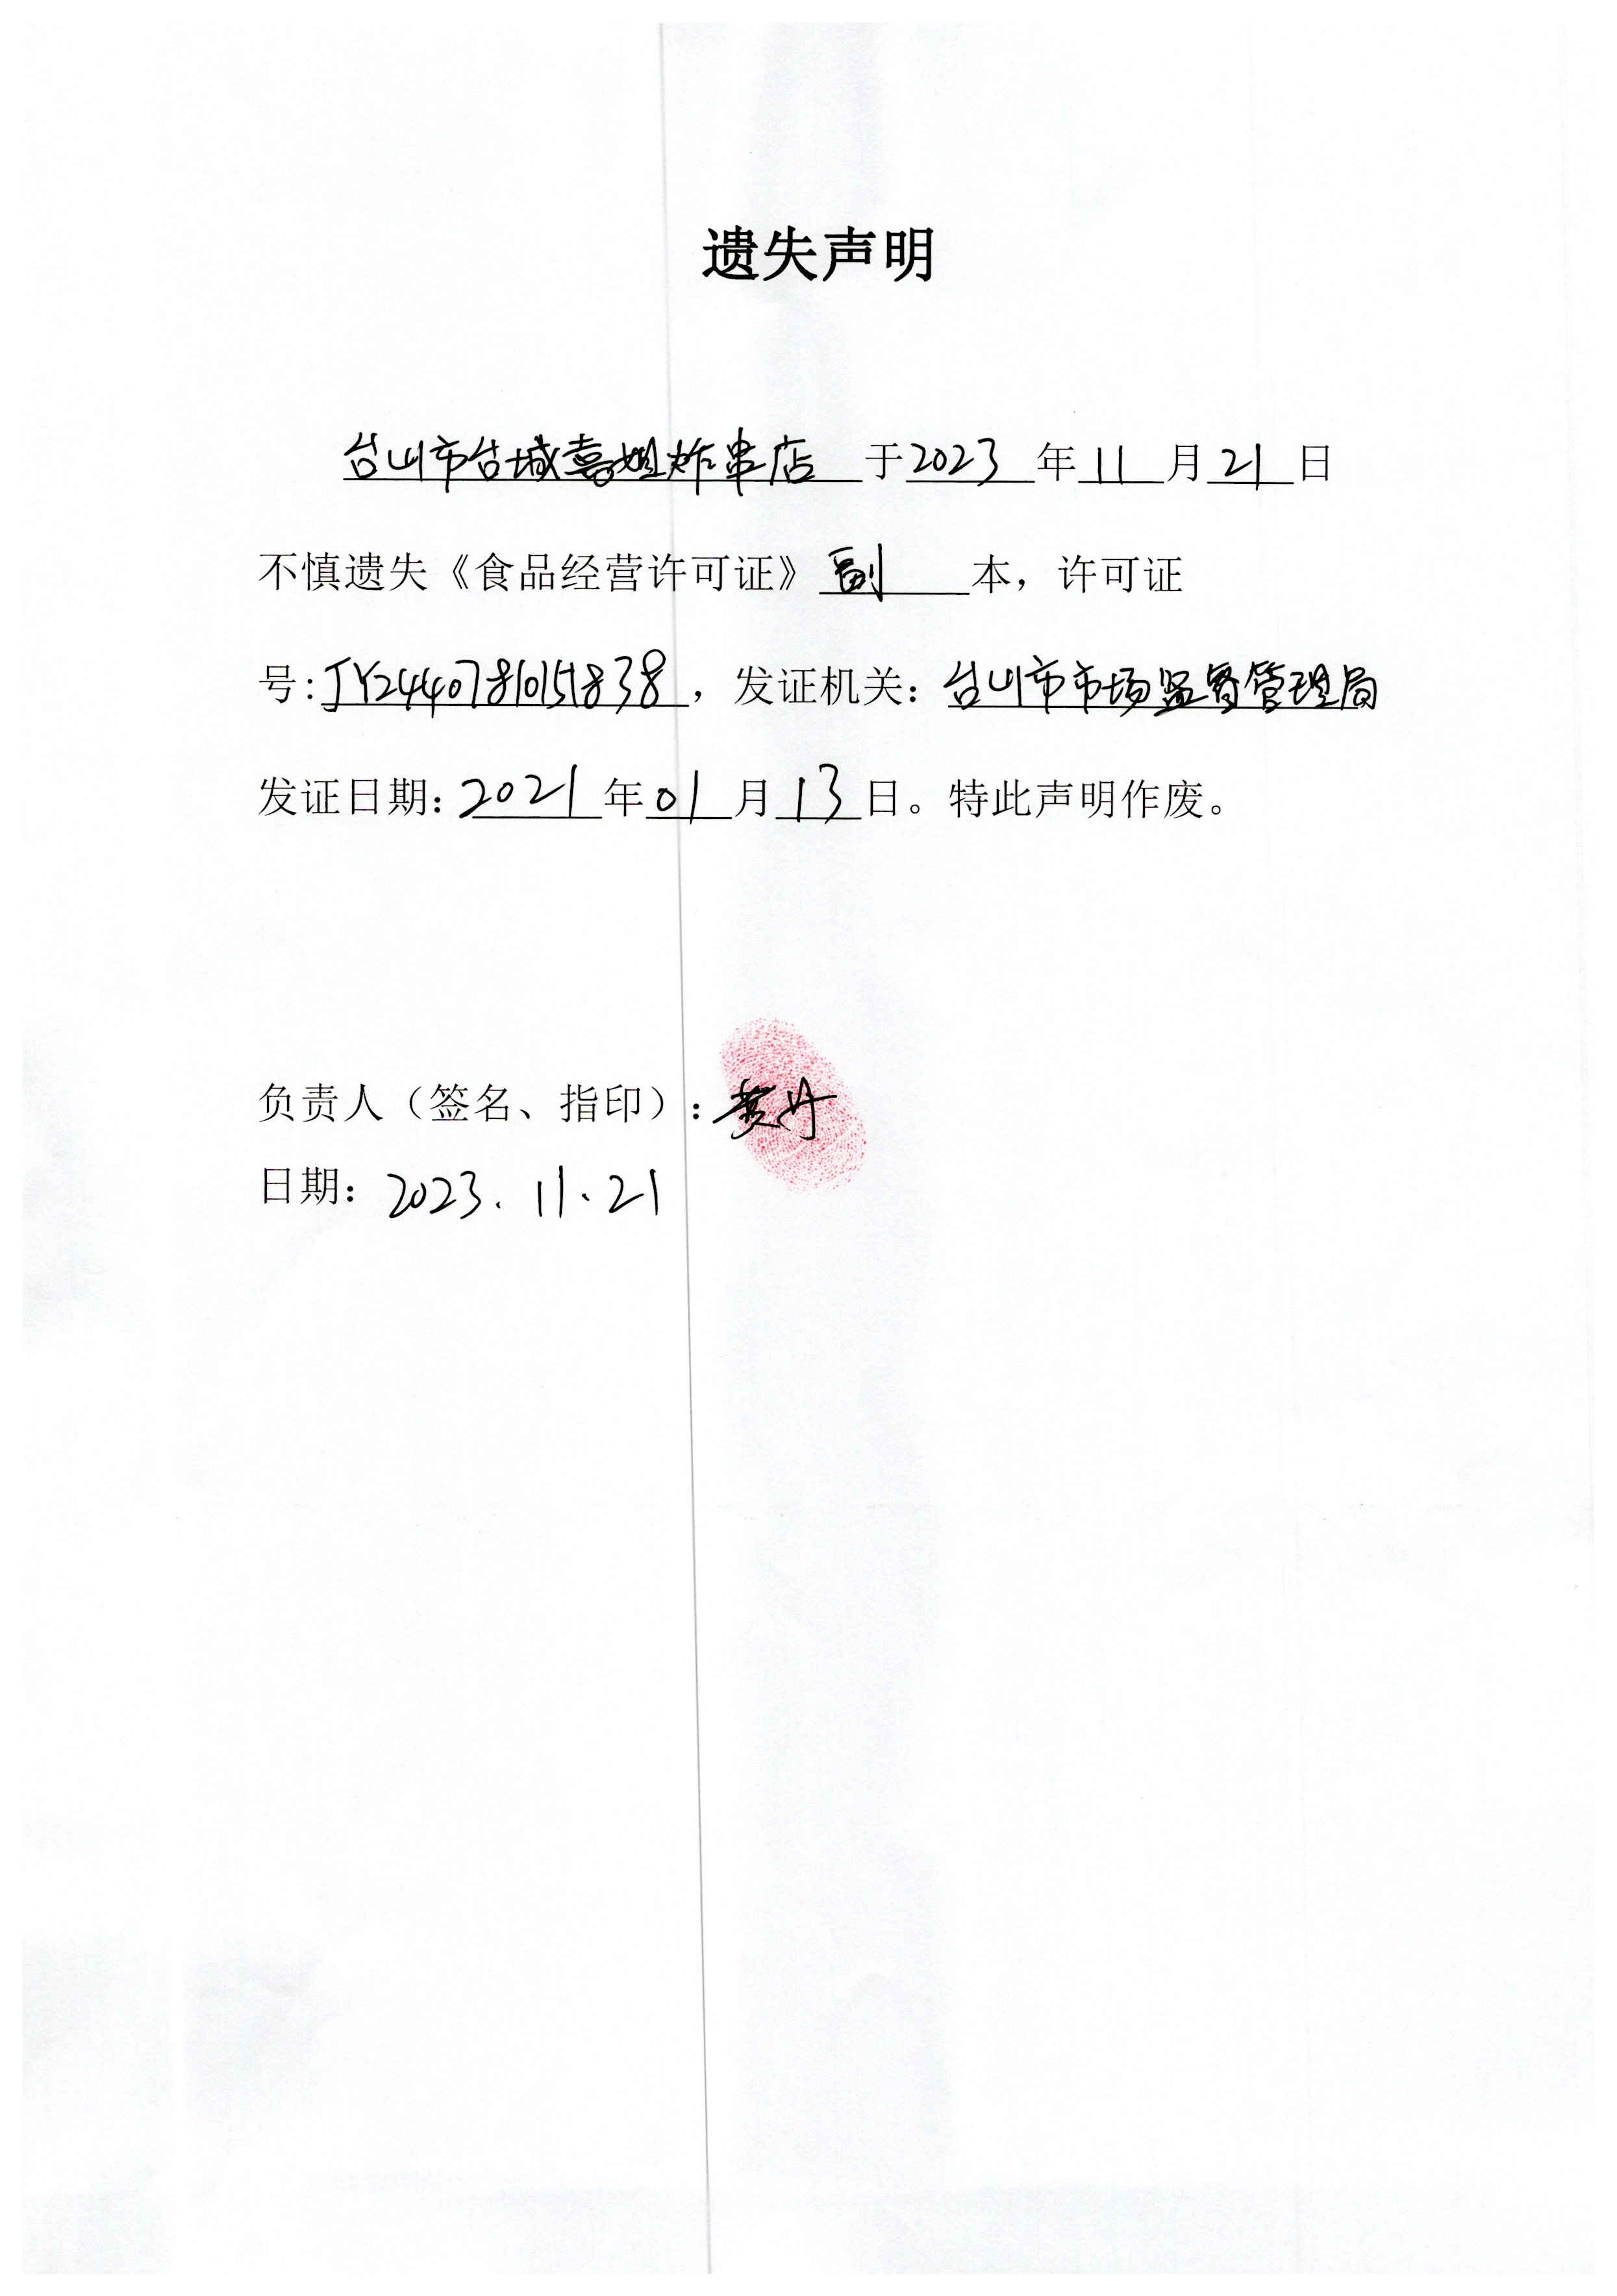 遗失声明
台山市台城喜姐炸串店 于2023 年 11 月 21 日
不慎遗失《食品经营许可证》副 本，许可证
号：JY24407810151838，发证机关：台山市市场监督管理局
发证日期：2021 年 01 月 13 日。特此声明作废。
负责人（签名、指印）：黄丹
日期：2023.11.21